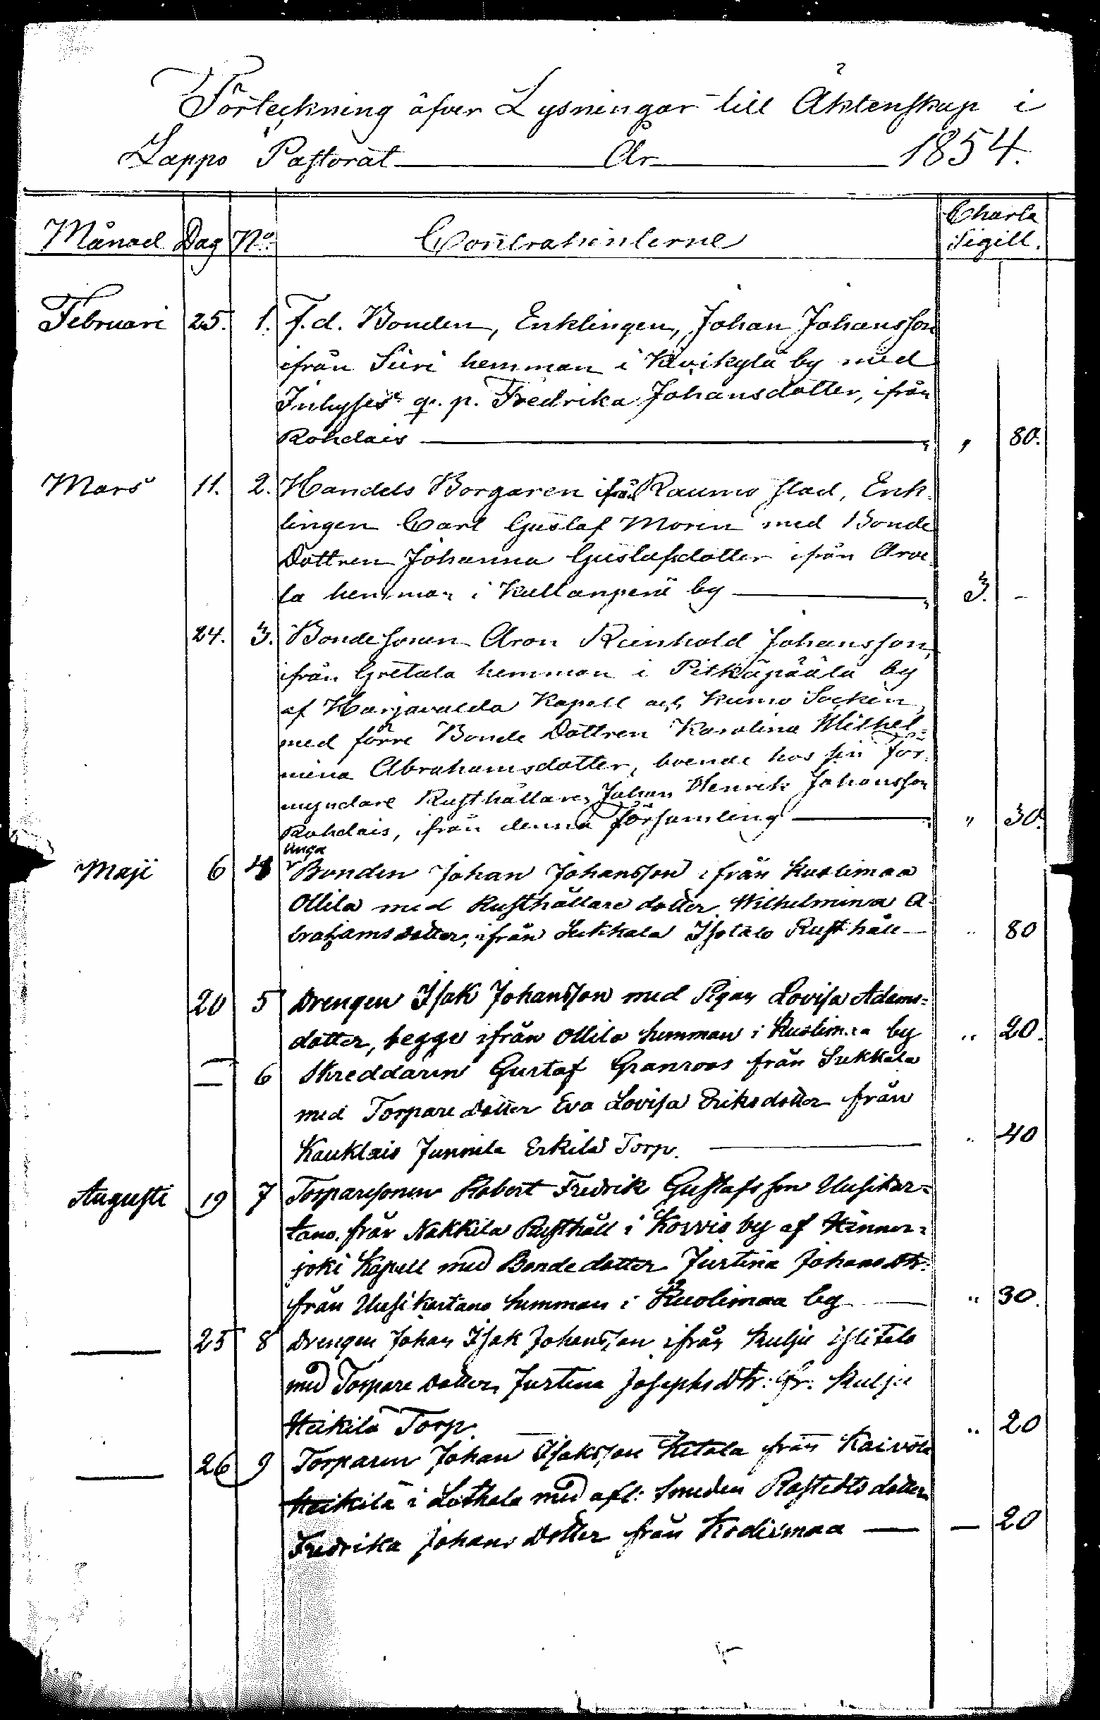 Förteckning öfver Lysningar till Äktenskap i
Lappo Pastorat År 1854.
Månad Dag No. Contrahenterne Charta Sigill.
Februari 25. 1. F.d. Bonden, Enklingen, Johan Johansson
ifrån Siiri hemman i Kivikylä by med
Inhyses q. p. Fredrika Johansdotter, ifrån
Rohdais " 80.
Mars 11. 2. Handels Borgaren ifrån Raumo stad, Enk-
lingen Carl Gustaf Morin med Bonde
Dottren Johanna Gustafsdotter ifrån Arve-
la hemman i Kullanperä by 3. -
24. 3. Bondesonen Aron Reinhold Johansson,
ifrån Gretala hemman i Pitkäpäälä by
af Harjavalda Kapell och Kumo Socken,
med förre Bonde Dottren Karolina Wilhel-
mina Abrahamsdotter, boende hos sin För-
myndare Rusthållaren Johan Henrik Johansson
Rohdais, ifrån denna Församling " 30.
Maji 6 4 Unga Bonden Johan Johansson ifrån Kuolimaa
Ollila med Rusthållare dotter Wilhelmina A-
brahamsdotter, ifrån Sukkala Isotalo Rusthåll " 80
20 5 Drengen Isak Johansson med Pigan Lovisa Adams-
dotter, begge ifrån Ollila hemman i Kuolimaa by " 20.
— 6 Skreddaren Gustaf Granroos från Sukkala
med Torpare dotter Eva Lovisa Eriksdotter från
Kauklais Junnila Erkilä Torp. " 40
Augusti 19 7 Torparesonen Robert Fredrik Gustafsson Uusikar-
tano, från Nakkila Rusthåll i Korvis by af Hinner-
joki Kapell med Bonde dotter Justina Johansdtr.
från Uusikartano hemman i Kuolimaa by " 30.
— 25 8 Drengen Johan Isak Johansson, ifrån Kulju
med Torpare Dotter, Justina Josephs Dtr. fr. Kulju
Heikilä Torp. " 20
— 26 9 Torparen Johan Isaksson Ketala från Kaivola
Heikilä i med afl: Smeden dotter
Fredrika Johans Dotter från Kodisimaa — 20